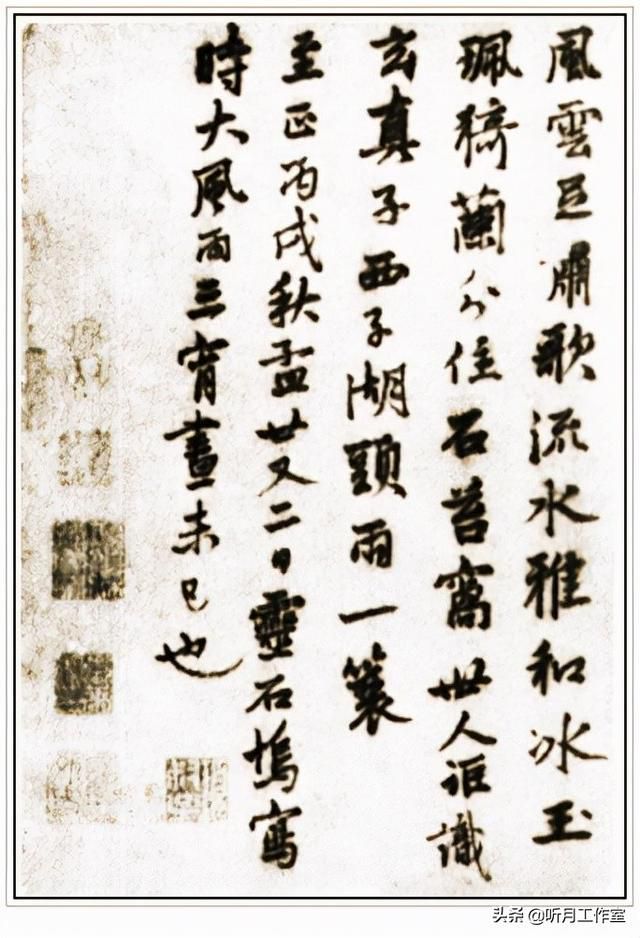 風雲歌流水雅和冰玉
珮猗蘭分住石苔窩世人詎識
玄真子西子湖頭雨一蓑
至正丙戌秋孟廿又二日靈石塢寫
時大風雨三宵晝未已也
头条 @听月工作室